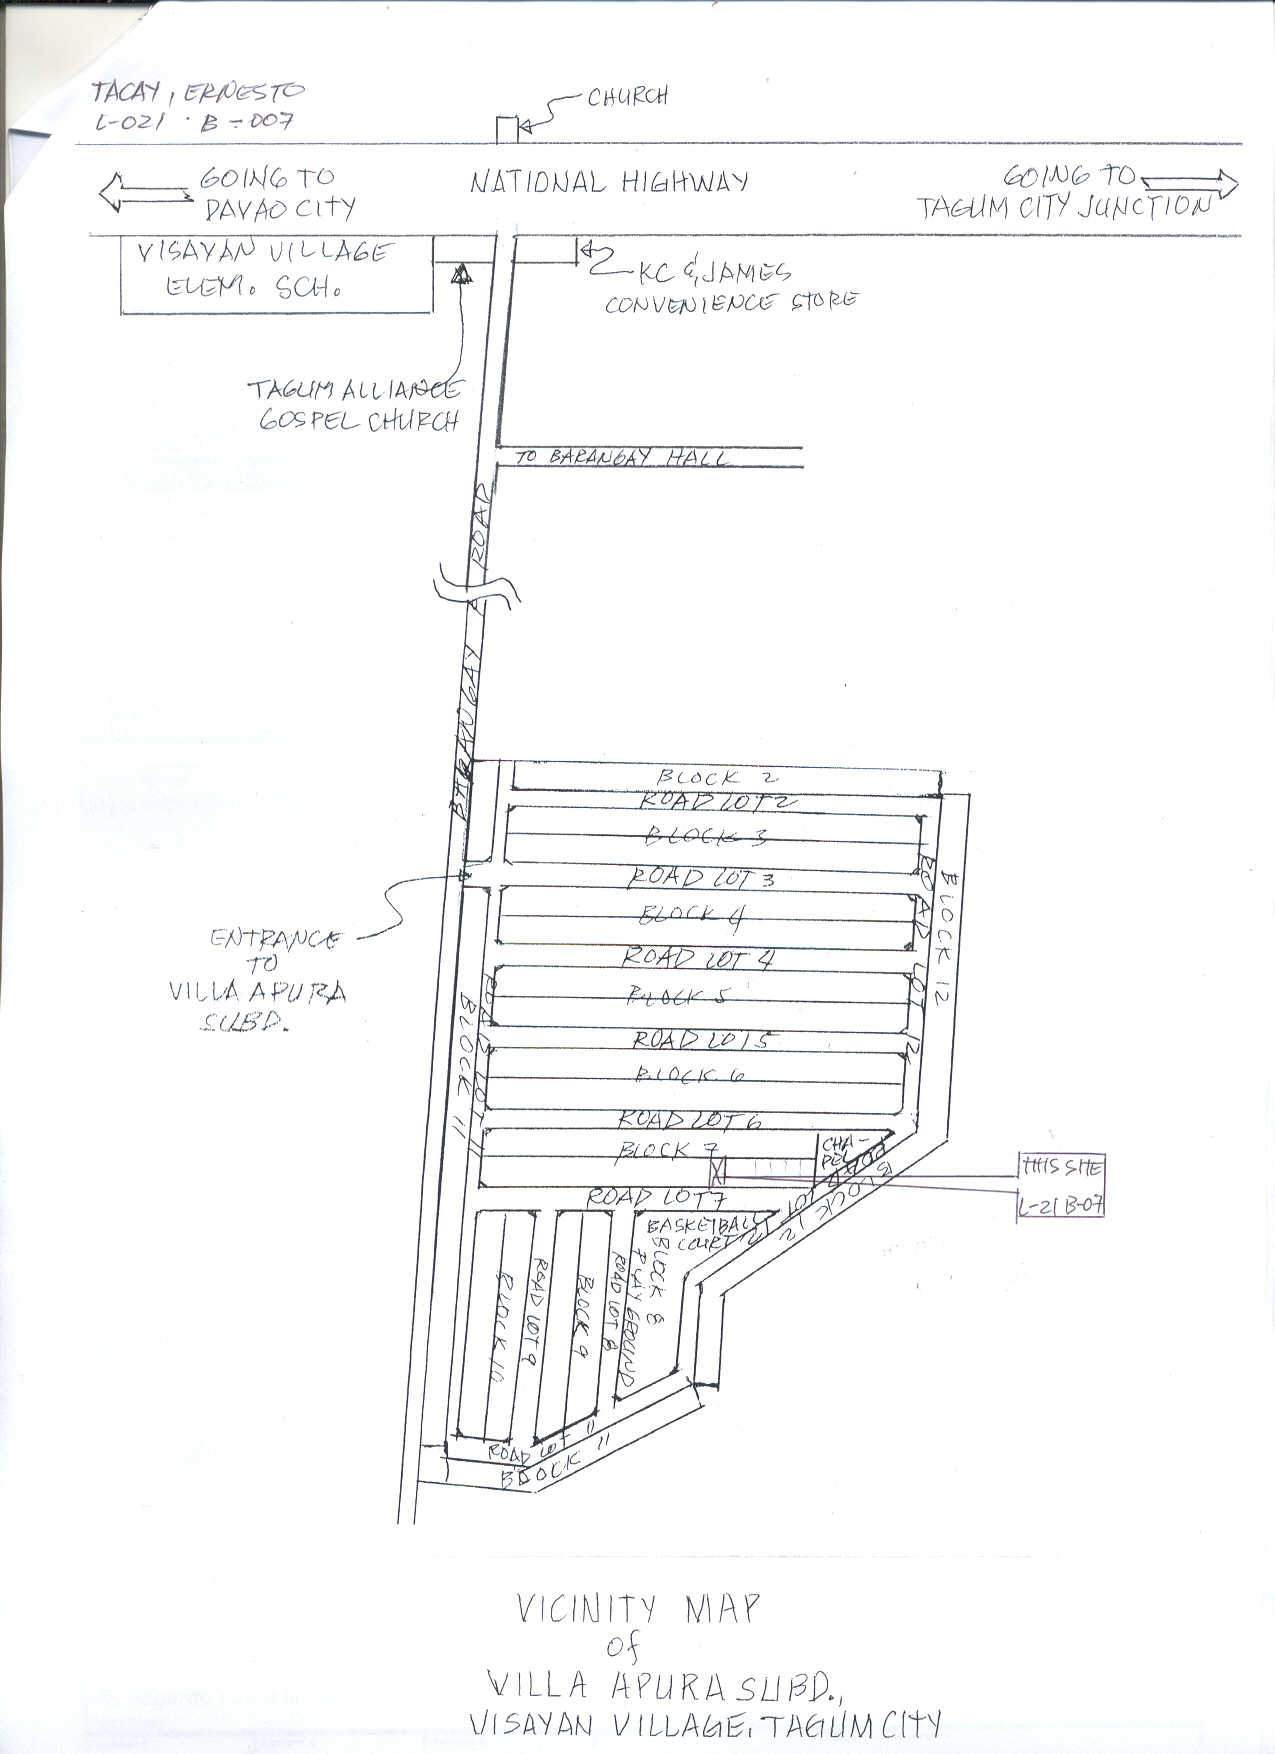 TACAY, ERNESTO
L-021 · B-007
CHURCH
GOING TO
DAVAO CITY
NATIONAL HIGHWAY
GOING TO
TAGUM CITY JUNCTION
VISAYAN VILLAGE
ELEM. SCH.
KC & JAMES
CONVENIENCE STORE
TAGUM ALLIANCE
GOSPEL CHURCH
TO BARANGAY HALL
BARANGAY ROAD
BLOCK 2
ROAD LOT 2
BLOCK 3
ROAD LOT 3
BLOCK 4
ROAD LOT 4
BLOCK 5
ROAD LOT 5
BLOCK 6
ROAD LOT 6
BLOCK 7
ROAD LOT 7
ROAD LOT 12
BLOCK 12
ENTRANCE
TO
VILLA APURA
SUBD.
BLOCK 11
ROAD LOT 11
CHA-
PEL
ROAD LOT 12
BLOCK 12
THIS SITE
L-21 B-07
BASKETBALL
COURT
BLOCK 8
PLAY GROUND
ROAD LOT 8
BLOCK 9
ROAD LOT 9
BLOCK 10
ROAD LOT 11
BLOCK 11
VICINITY MAP
of
VILLA APURA SUBD.,
VISAYAN VILLAGE, TAGUM CITY